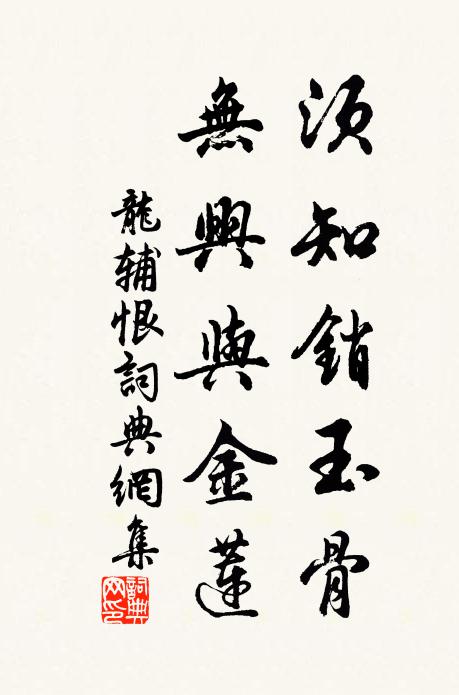 須知銷玉骨
無興與金蓮
龍辅恨詞典網集
詞典網印